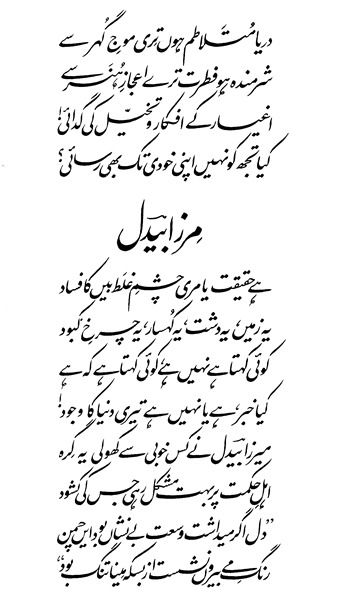 دریا متلاطم ہوں تری موجِ گہر سے
شرمندہ ہو فطرت ترے اعجازِ ہنر سے
اغیار کے افکار و تخیل کی گدائی!
کیا تجھ کو نہیں اپنی خودی تک بھی رسائی؟
مرزا بیدل
ہے حقیقت یا مری چشمِ غلط بیں کا فساد
یہ زمیں، یہ دشت، یہ کہسار، یہ چرخِ کبود
کوئی کہتا ہے نہیں ہے، کوئی کہتا ہے کہ ہے
کیا خبر، ہے یا نہیں ہے تیری دنیا کا وجود!
میرزا بیدل نے کس خوبی سے کھولی یہ گرہ
اہلِ حکمت پر بہت مشکل رہی جس کی کشود
”دل اگر میداشت وسعت بے نشاں بود ایں چمن
رنگِ مے بیروں نشست از بسکہ مینا تنگ بود“